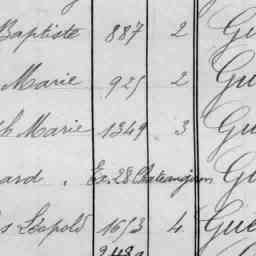 Baptiste 887 2 Gu
Marie 925 2 Gu
h Marie 1349 3 Gu
ard. Ex. 28 Gu
s Léopold 1653 4 Gue